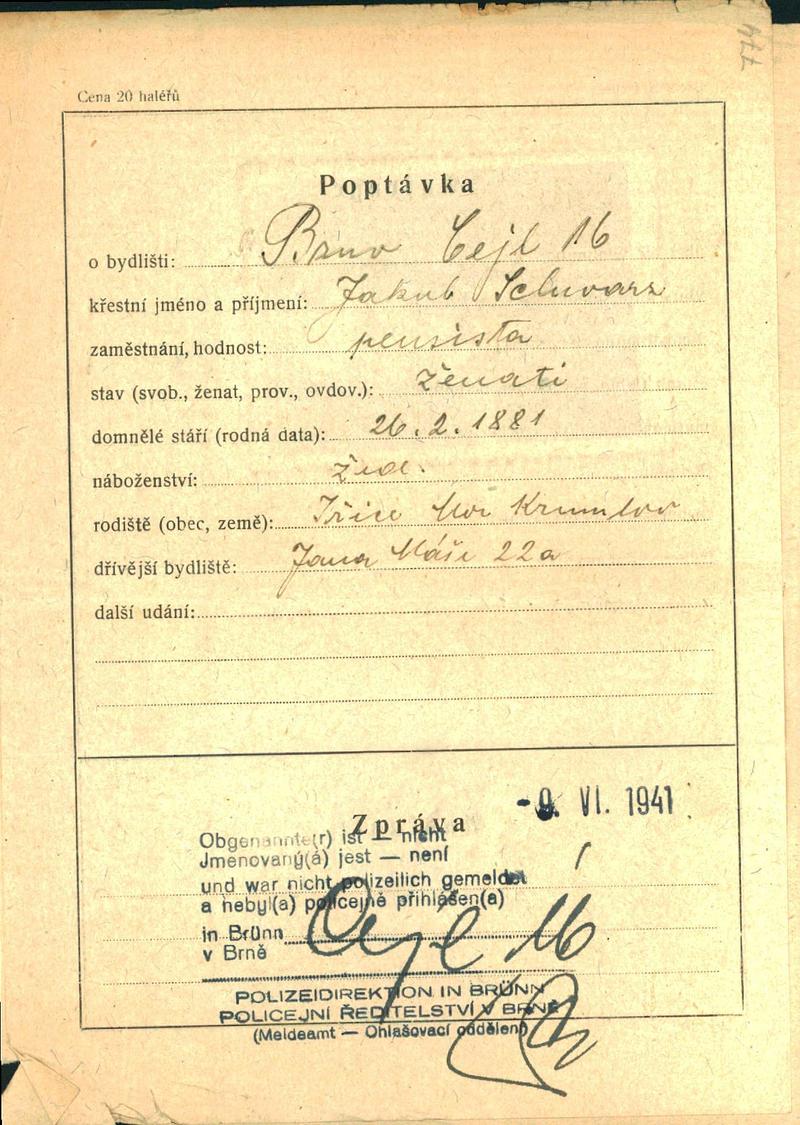 774
Cena 20 haléřů
Poptávka
o bydlišti: Brno Cejl 16
křestní jméno a příjmení: Jakub Schwarz
zaměstnání, hodnost: pensista
stav (svob., ženat, prov., ovdov.): ženatí
domnělé stáří (rodná data): 26. 2. 1881
náboženství: žid.
rodiště (obec, země): Jřice Mor Krumlov
dřívější bydliště: Jana Máši 22a
další udání:
- 9. VI. 1941
Zpráva
Obgenannte(r) ist — nicht
Jmenovaný(á) jest — není
und war nicht polizeilich gemeldet
a nebyl(a) policejně přihlášen(a)
in Brünn
v Brně
Cejl 16
POLIZEIDIREKTION IN BRÜNN
POLICEJNÍ ŘEDITELSTVÍ V BRNĚ
(Meldeamt — Ohlašovací oddělení)